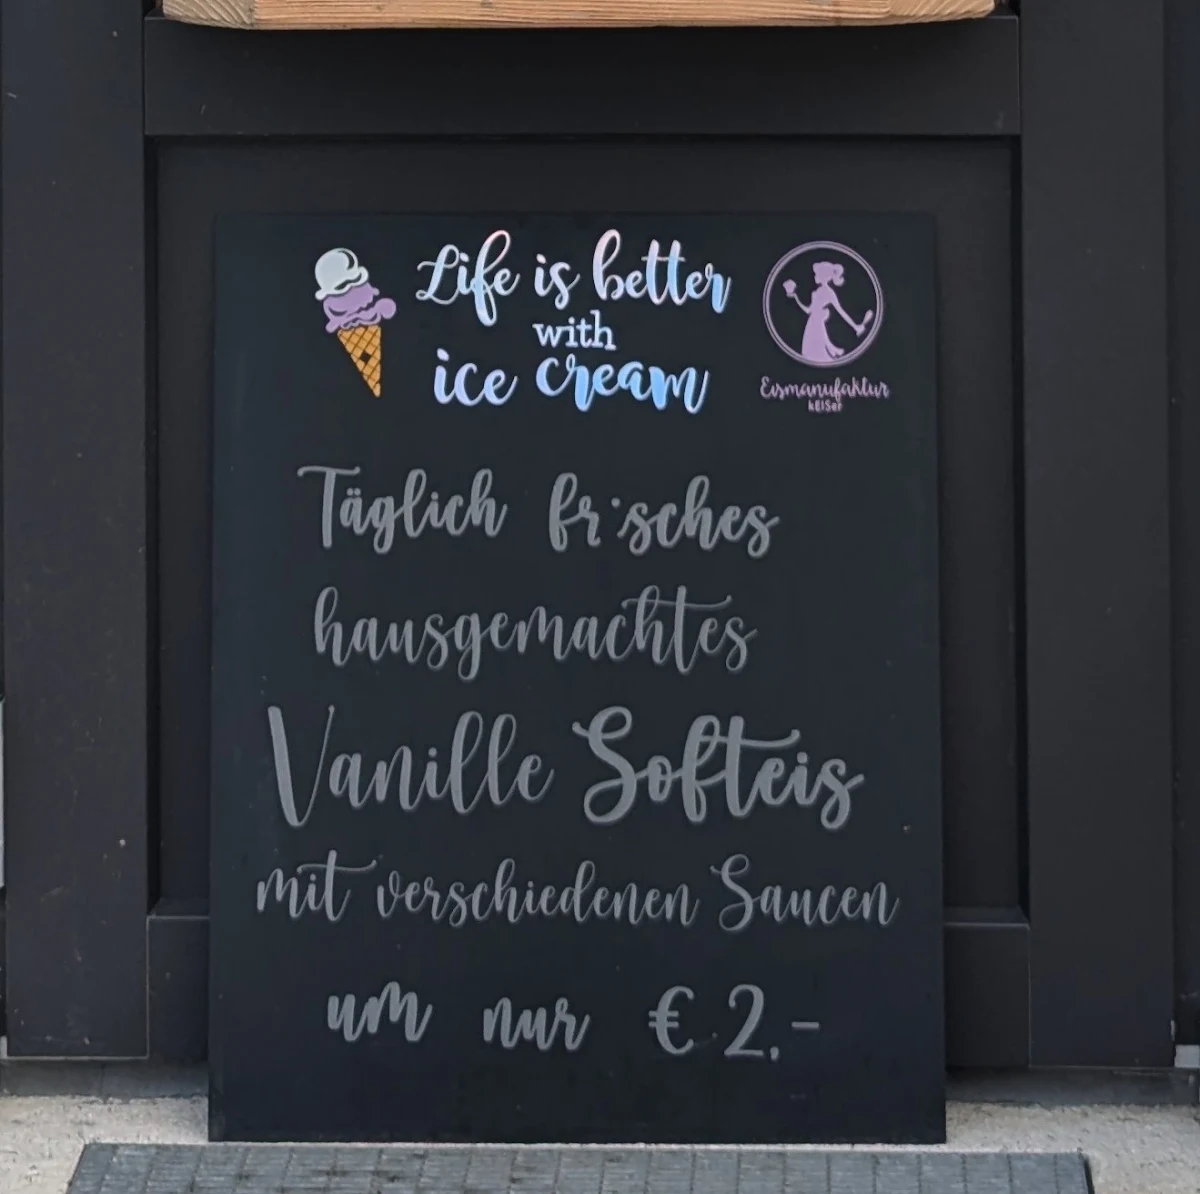 Life is better
with
ice cream
Eismanufaktur
kEISer
Täglich fr·sches
hausgemachtes
Vanille Softeis
mit verschiedenen Saucen
um nur € 2,-